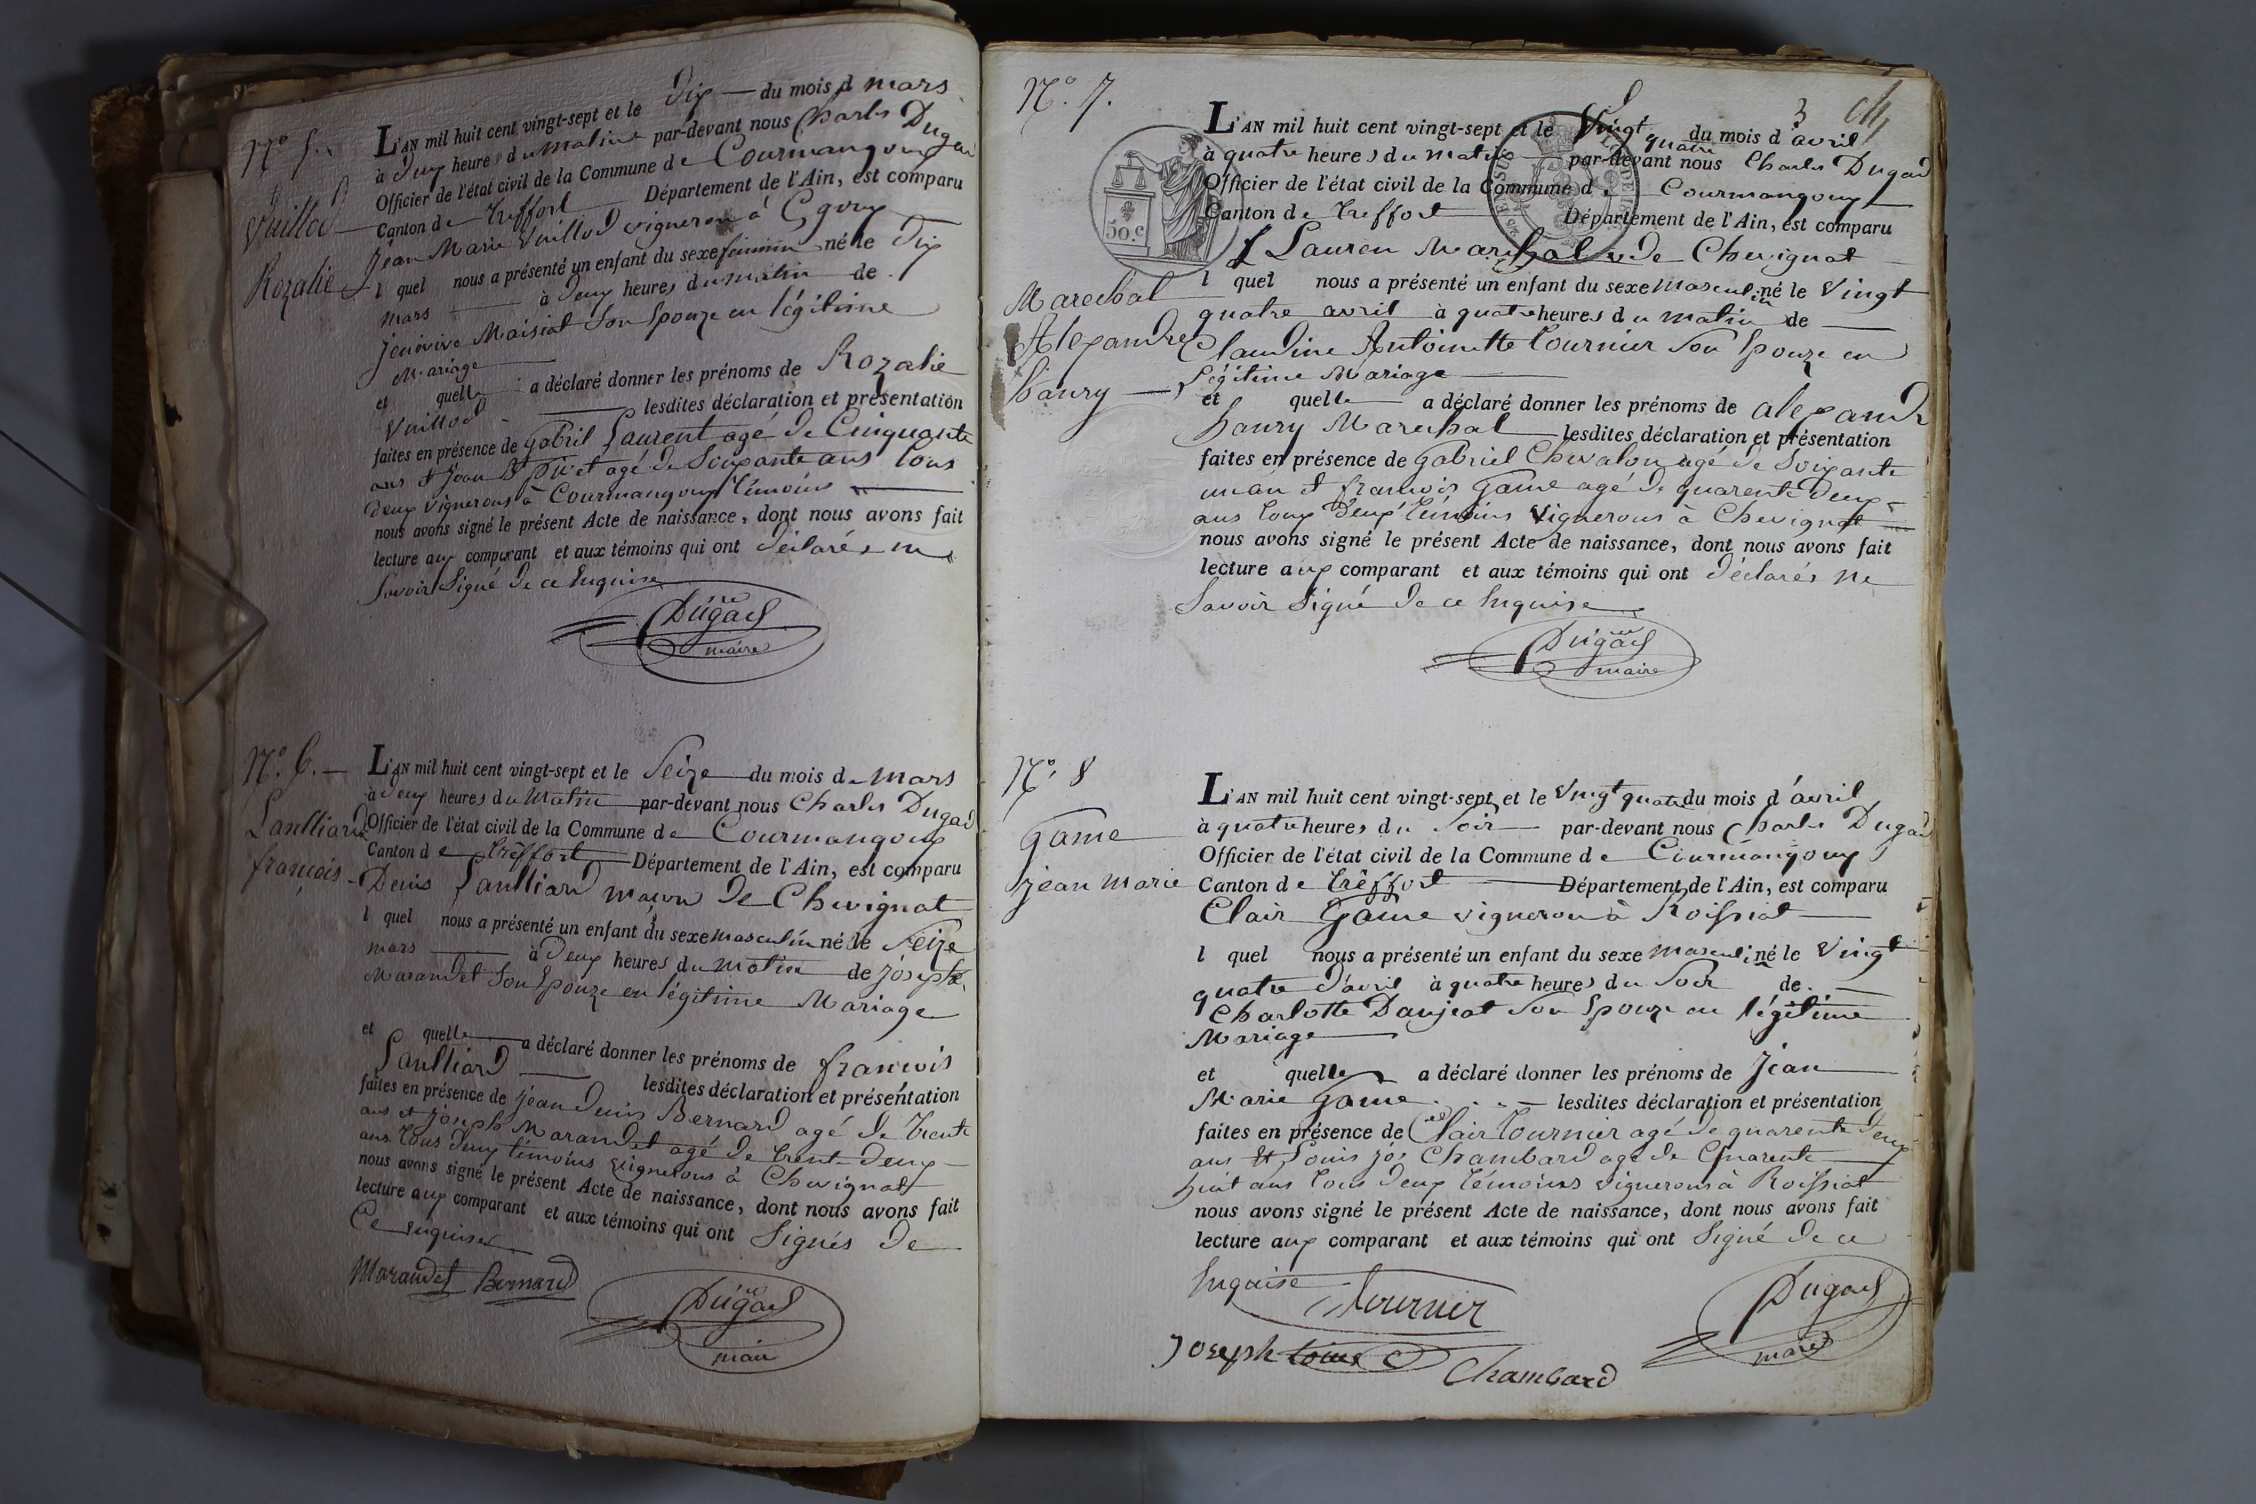 Nº 5.
Vuillod
Rozalie
L'AN mil huit cent vingt-sept et le dix du mois d mars
à deux heures du matin par-devant nous Charles Dugad
Officier de l'état civil de la Commune de Courmangoux
Canton de treffort Département de l'Ain, est comparu
jean Marie Vuillod vigneron à
l quel nous a présenté un enfant du sexe feminin né le dix
mars à deux heures du matin de
jenevive Maisiat son Epouze en légitime
Mariage
et quelle a déclaré donner les prénoms de Rozalie
Vuillod lesdites déclaration et présentation
faites en présence de gabril Laurent agé de Cinquante
ans et jean Bte agé de Soixante ans tous
deux vignerons à Courmangoux témoins
nous avons signé le présent Acte de naissance, dont nous avons fait
lecture aux comparant et aux témoins qui ont déclarés ne
Savoir Signé de ce Enquise
Dugad
maire
Nº 6.
Laulliard
francois
L'AN mil huit cent vingt-sept et le Seize du mois de mars
à deux heures du Matin par-devant nous Charles Dugad
Officier de l'état civil de la Commune de Courmangoux
Canton de treffort Département de l'Ain, est comparu
Denis Laulliard maçon de Chevignat
l quel nous a présenté un enfant du sexe masculin né le Seize
mars à deux heures du matin de joseph
Marandet Son Epouze en légitime Mariage
et quelle a déclaré donner les prénoms de francois
Laulliard lesdites déclaration et présentation
faites en présence de jean denis Bernard agé de trente
ans et joseph Marandet agé de trente deux
ans tous deux témoins vignerons à Chevignat
nous avons signé le présent Acte de naissance, dont nous avons fait
lecture aux comparant et aux témoins qui ont Signés de
Ce enquise
Marandet Bernard
Dugad
maire
Nº 7.
3
Marechal
Alexandre
haury
50.c
L'AN mil huit cent vingt-sept et le Vingt quatre du mois d'avril
à quatre heures du matin par-devant nous Charles Dugad
Officier de l'état civil de la Commune d Courmangoux
Canton de treffort Département de l'Ain, est comparu
Lauren Marechal de Chevignat
l quel nous a présenté un enfant du sexe masculin né le Vingt
quatre avril à quatre heures du matin de
Claudine Antoinette tournier Son Epouze en
légitime Mariage
et quelle a déclaré donner les prénoms de alexandr
haury Marechal lesdites déclaration et présentation
faites en présence de gabriel Chevalon agé de Soixante
un an et francois Game agé de quarente deux
ans tous deux témoins vignerons à Chevignat
nous avons signé le présent Acte de naissance, dont nous avons fait
lecture aux comparant et aux témoins qui ont déclarés ne
Savoir Signé de ce Enquise
Dugad
maire
Nº 8
Game
jean marie
L'AN mil huit cent vingt-sept et le Vingt quatre du mois d'avril
à quatre heures du Soir par-devant nous Charles Dugad
Officier de l'état civil de la Commune de Courmangoux
Canton de treffort Département de l'Ain, est comparu
Clair Game vigneron à Roissiat
l quel nous a présenté un enfant du sexe masculin né le Vingt
quatre d'avril à quatre heures du Soir de
Charlotte Danjeat Son Epouze en légitime
Mariage
et quelle a déclaré donner les prénoms de jean
Marie Game lesdites déclaration et présentation
faites en présence de Clair tournier agé de quarente deux
ans et Louis jos Chambard agé de Quarente
huit ans tous deux témoins vignerons à Roissiat
nous avons signé le présent Acte de naissance, dont nous avons fait
lecture aux comparant et aux témoins qui ont Signé de ce
Enquise
tournier
Dugad
maire
Joseph Chambard